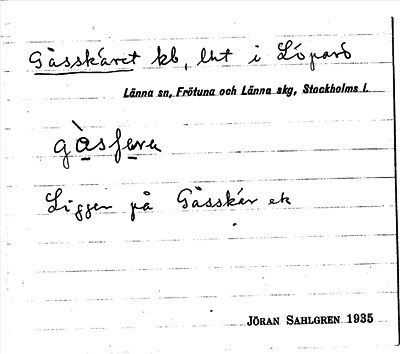 Gåsskäret kb, lht i Löparö
Länna sn, Frötuna och Länna skg, Stockholms l.
Ligger på Gåsskär ek
JÖRAN SAHLGREN 1935